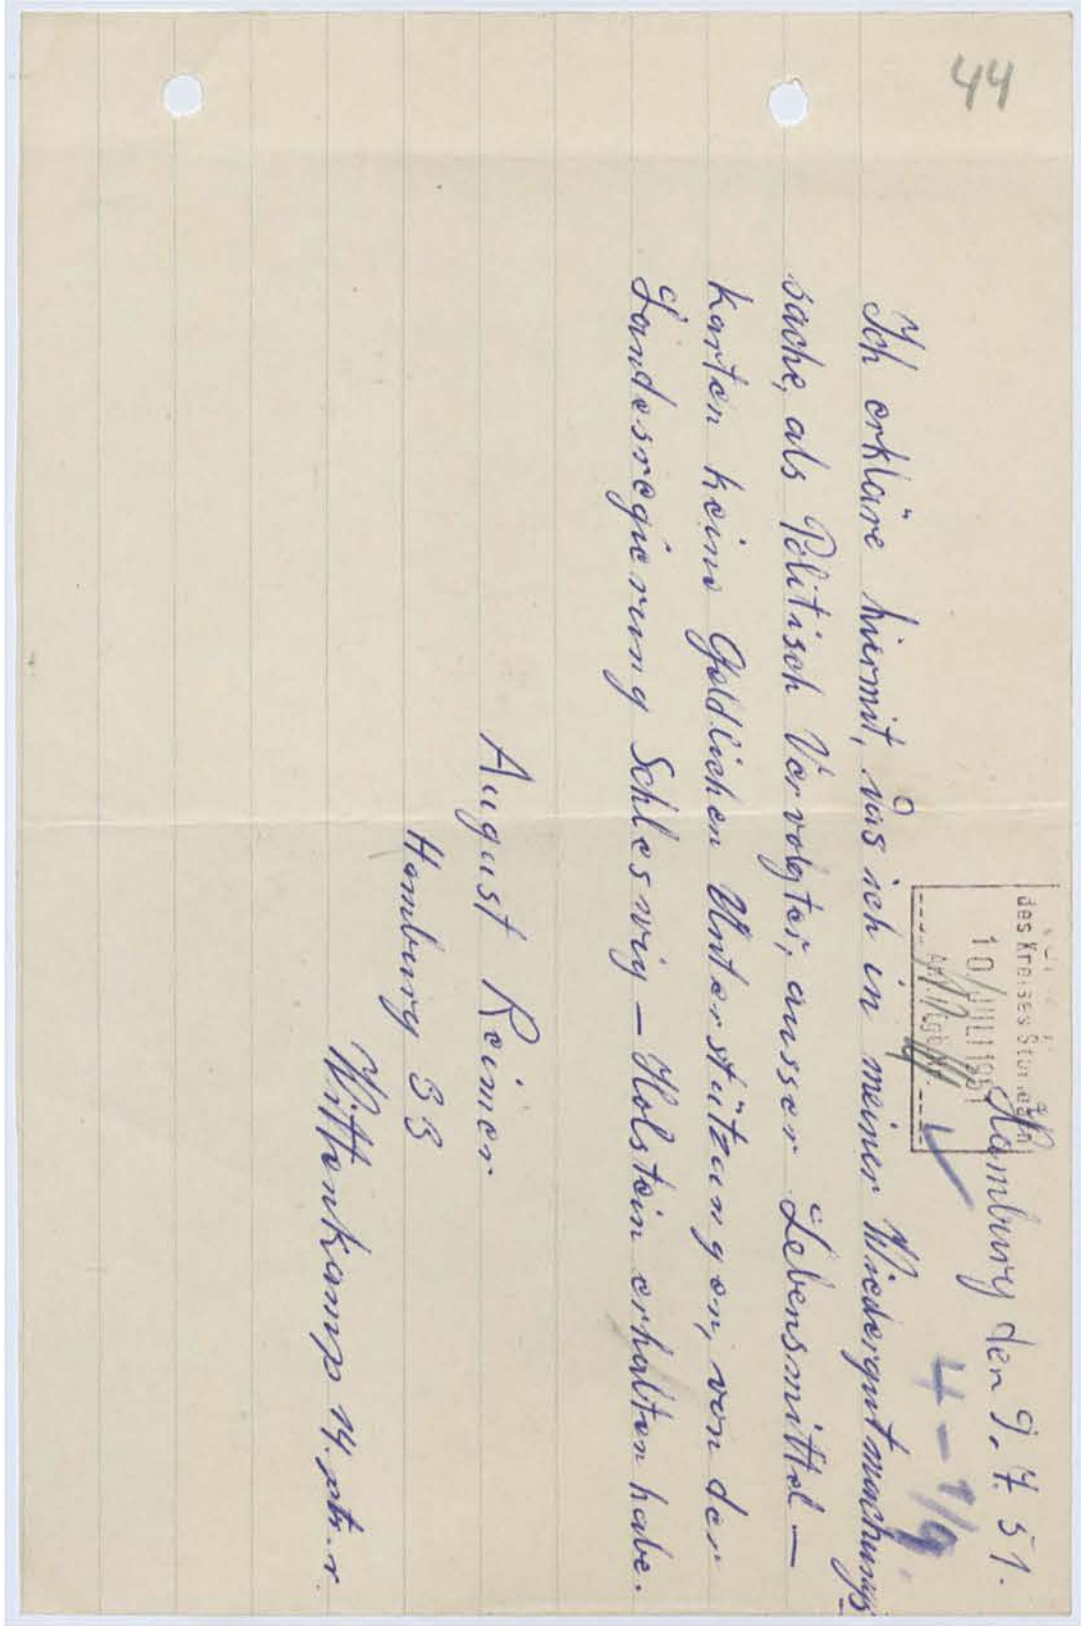 44
des Kreises Stormarn
10. JULI 1951
Hamburg den 9.7.51.
4-1/9.
Ich erkläre hiermit, das ich in meiner Wiedergutmachungs-
sache, als Politisch Vervolgter, ausser Lebensmittel-
karten keine Geldlichen Unterstützungen, von der
Landesregierung Schleswig-Holstein erhalten habe.
August Reimer
Hamburg 33
Wittenkamp 14. ptr. r.